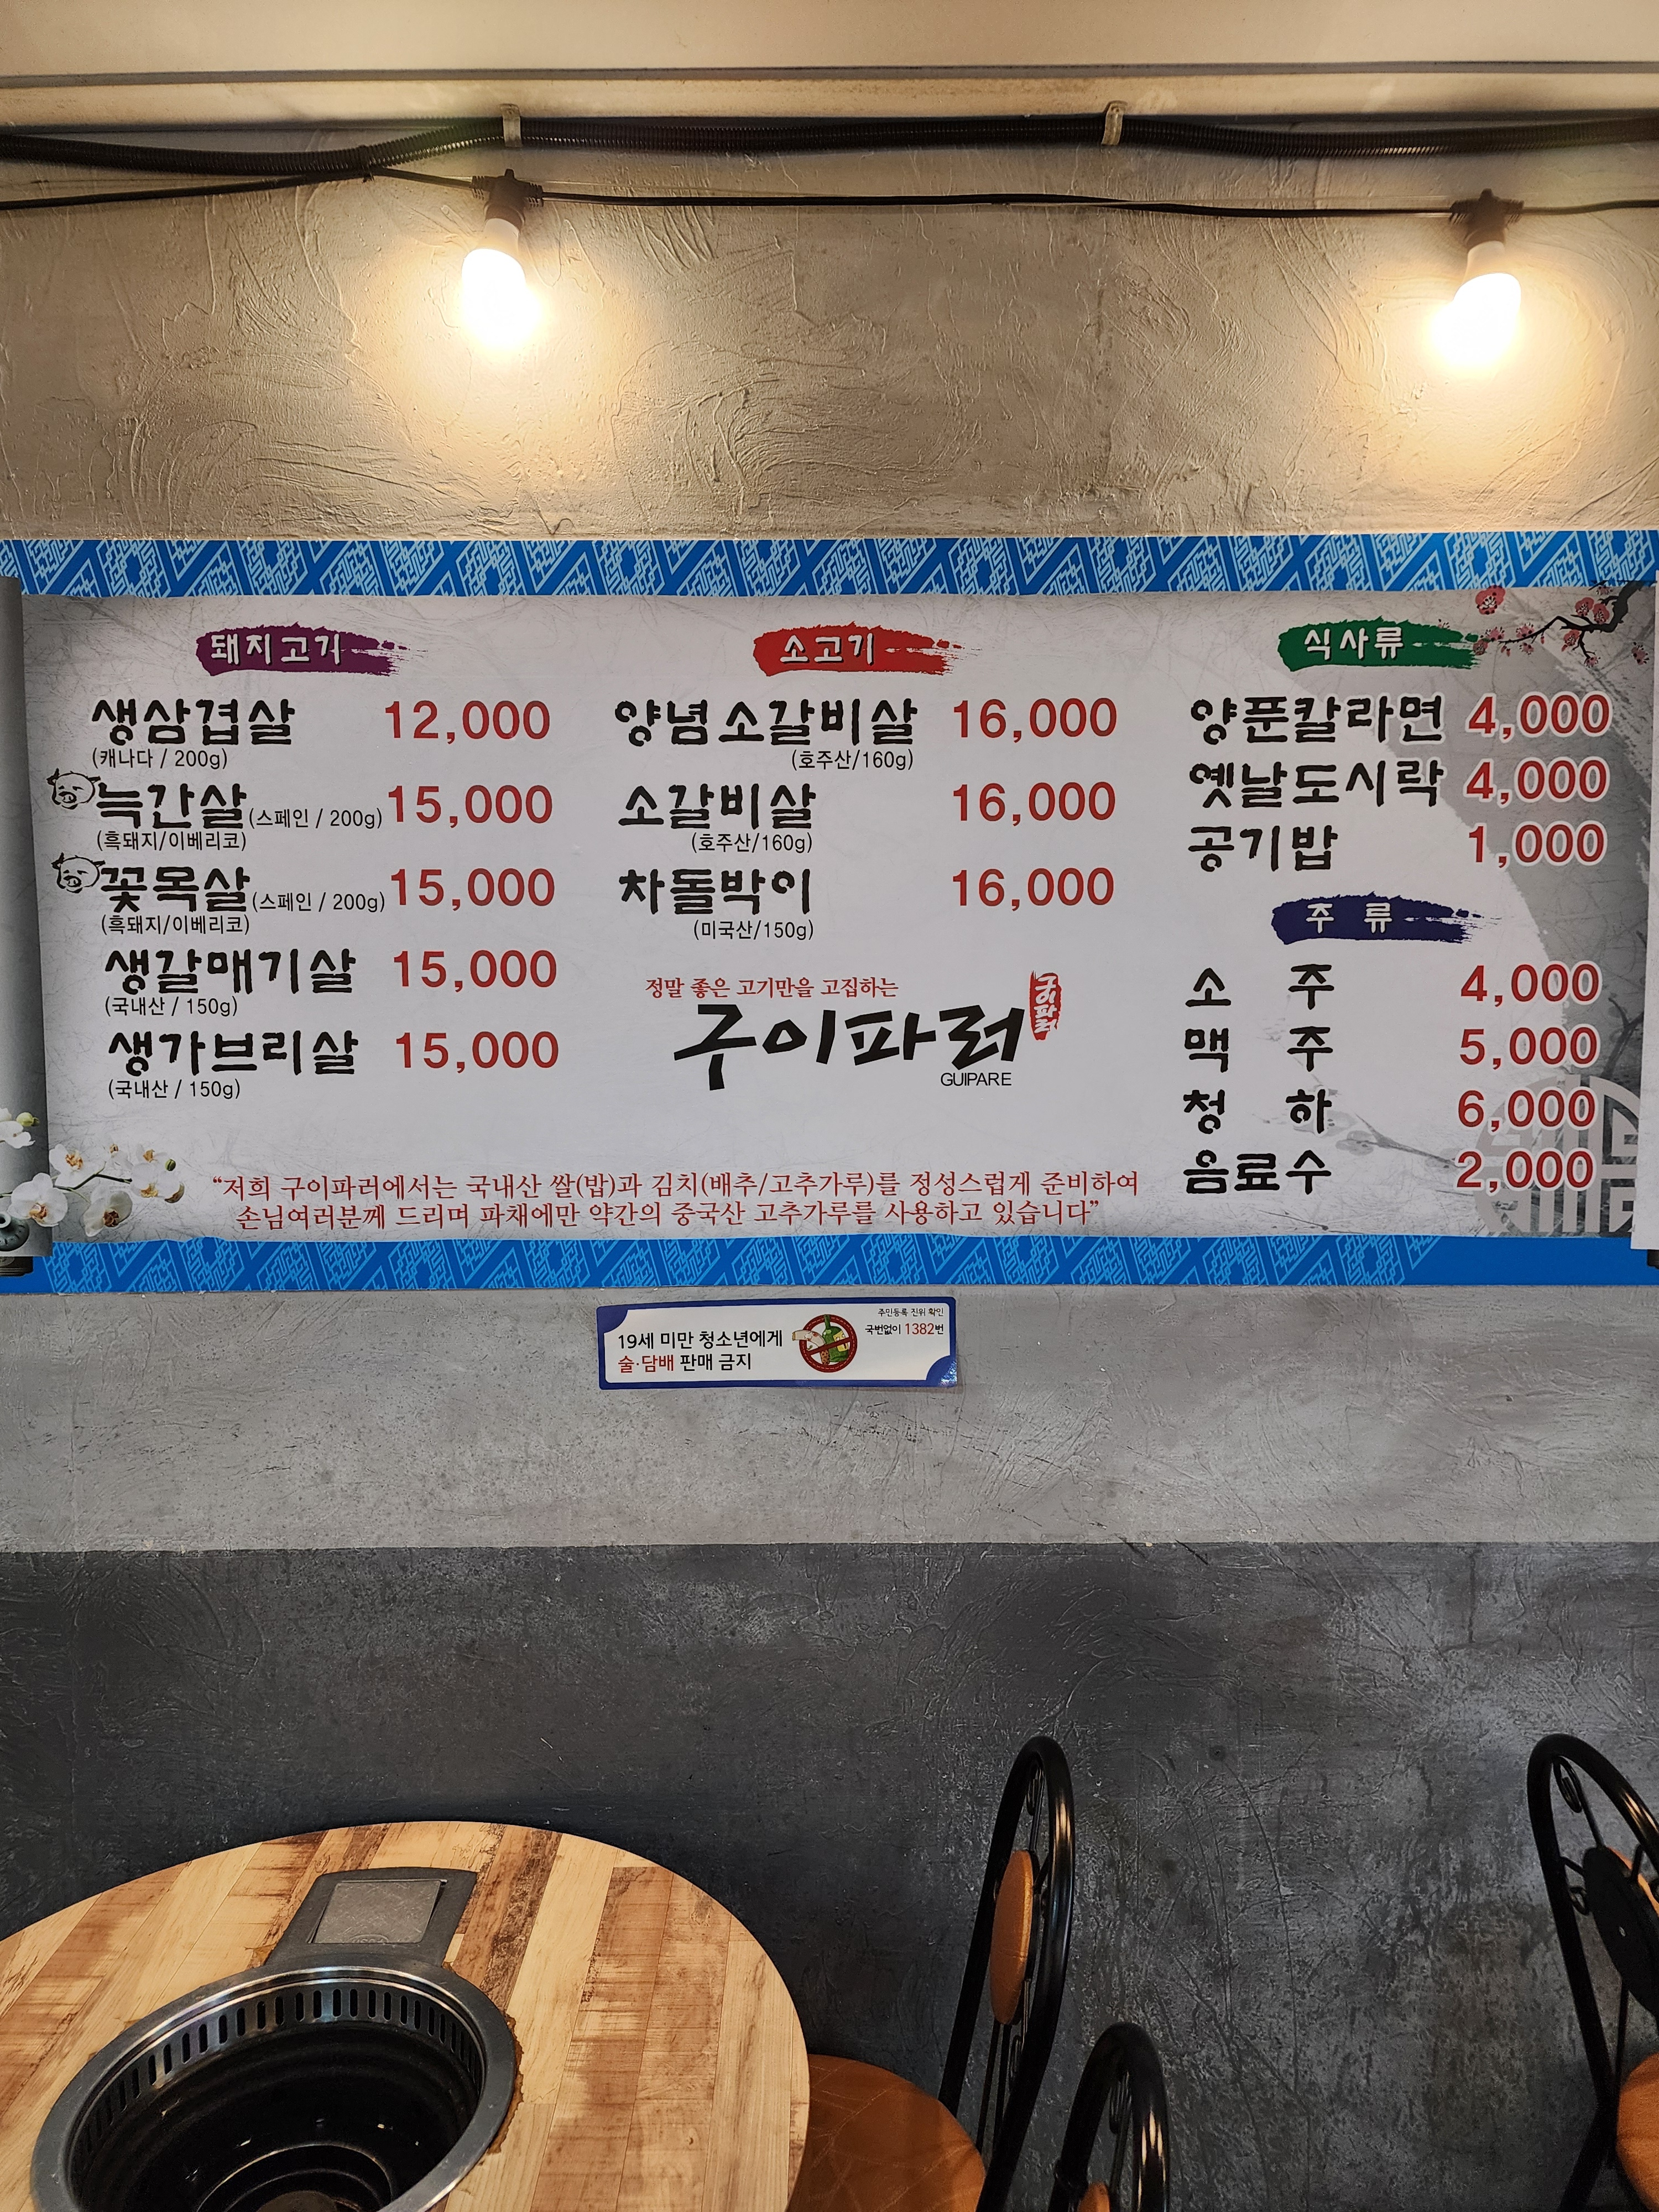 돼지고기
생삼겹살 12,000
(캐나다 / 200g)
늑간살(스페인 / 200g) 15,000
(흑돼지/이베리코)
꽃목살(스페인 / 200g) 15,000
(흑돼지/이베리코)
생갈매기살 15,000
(국내산 / 150g)
생가브리살 15,000
(국내산 / 150g)
소고기
양념소갈비살 16,000
(호주산/160g)
소갈비살 16,000
(호주산/160g)
차돌박이 16,000
(미국산/150g)
정말 좋은 고기만을 고집하는
구이파러
구이파러
GUIPARE
식사류
양푼칼라면 4,000
옛날도시락 4,000
공기밥 1,000
주 류
소 주 4,000
맥 주 5,000
청 하 6,000
음료수 2,000
“저희 구이파러에서는 국내산 쌀(밥)과 김치(배추/고추가루)를 정성스럽게 준비하여
손님여러분께 드리며 파채에만 약간의 중국산 고추가루를 사용하고 있습니다”
19세 미만 청소년에게
술·담배 판매 금지
주민등록 진위 확인
국번없이 1382번